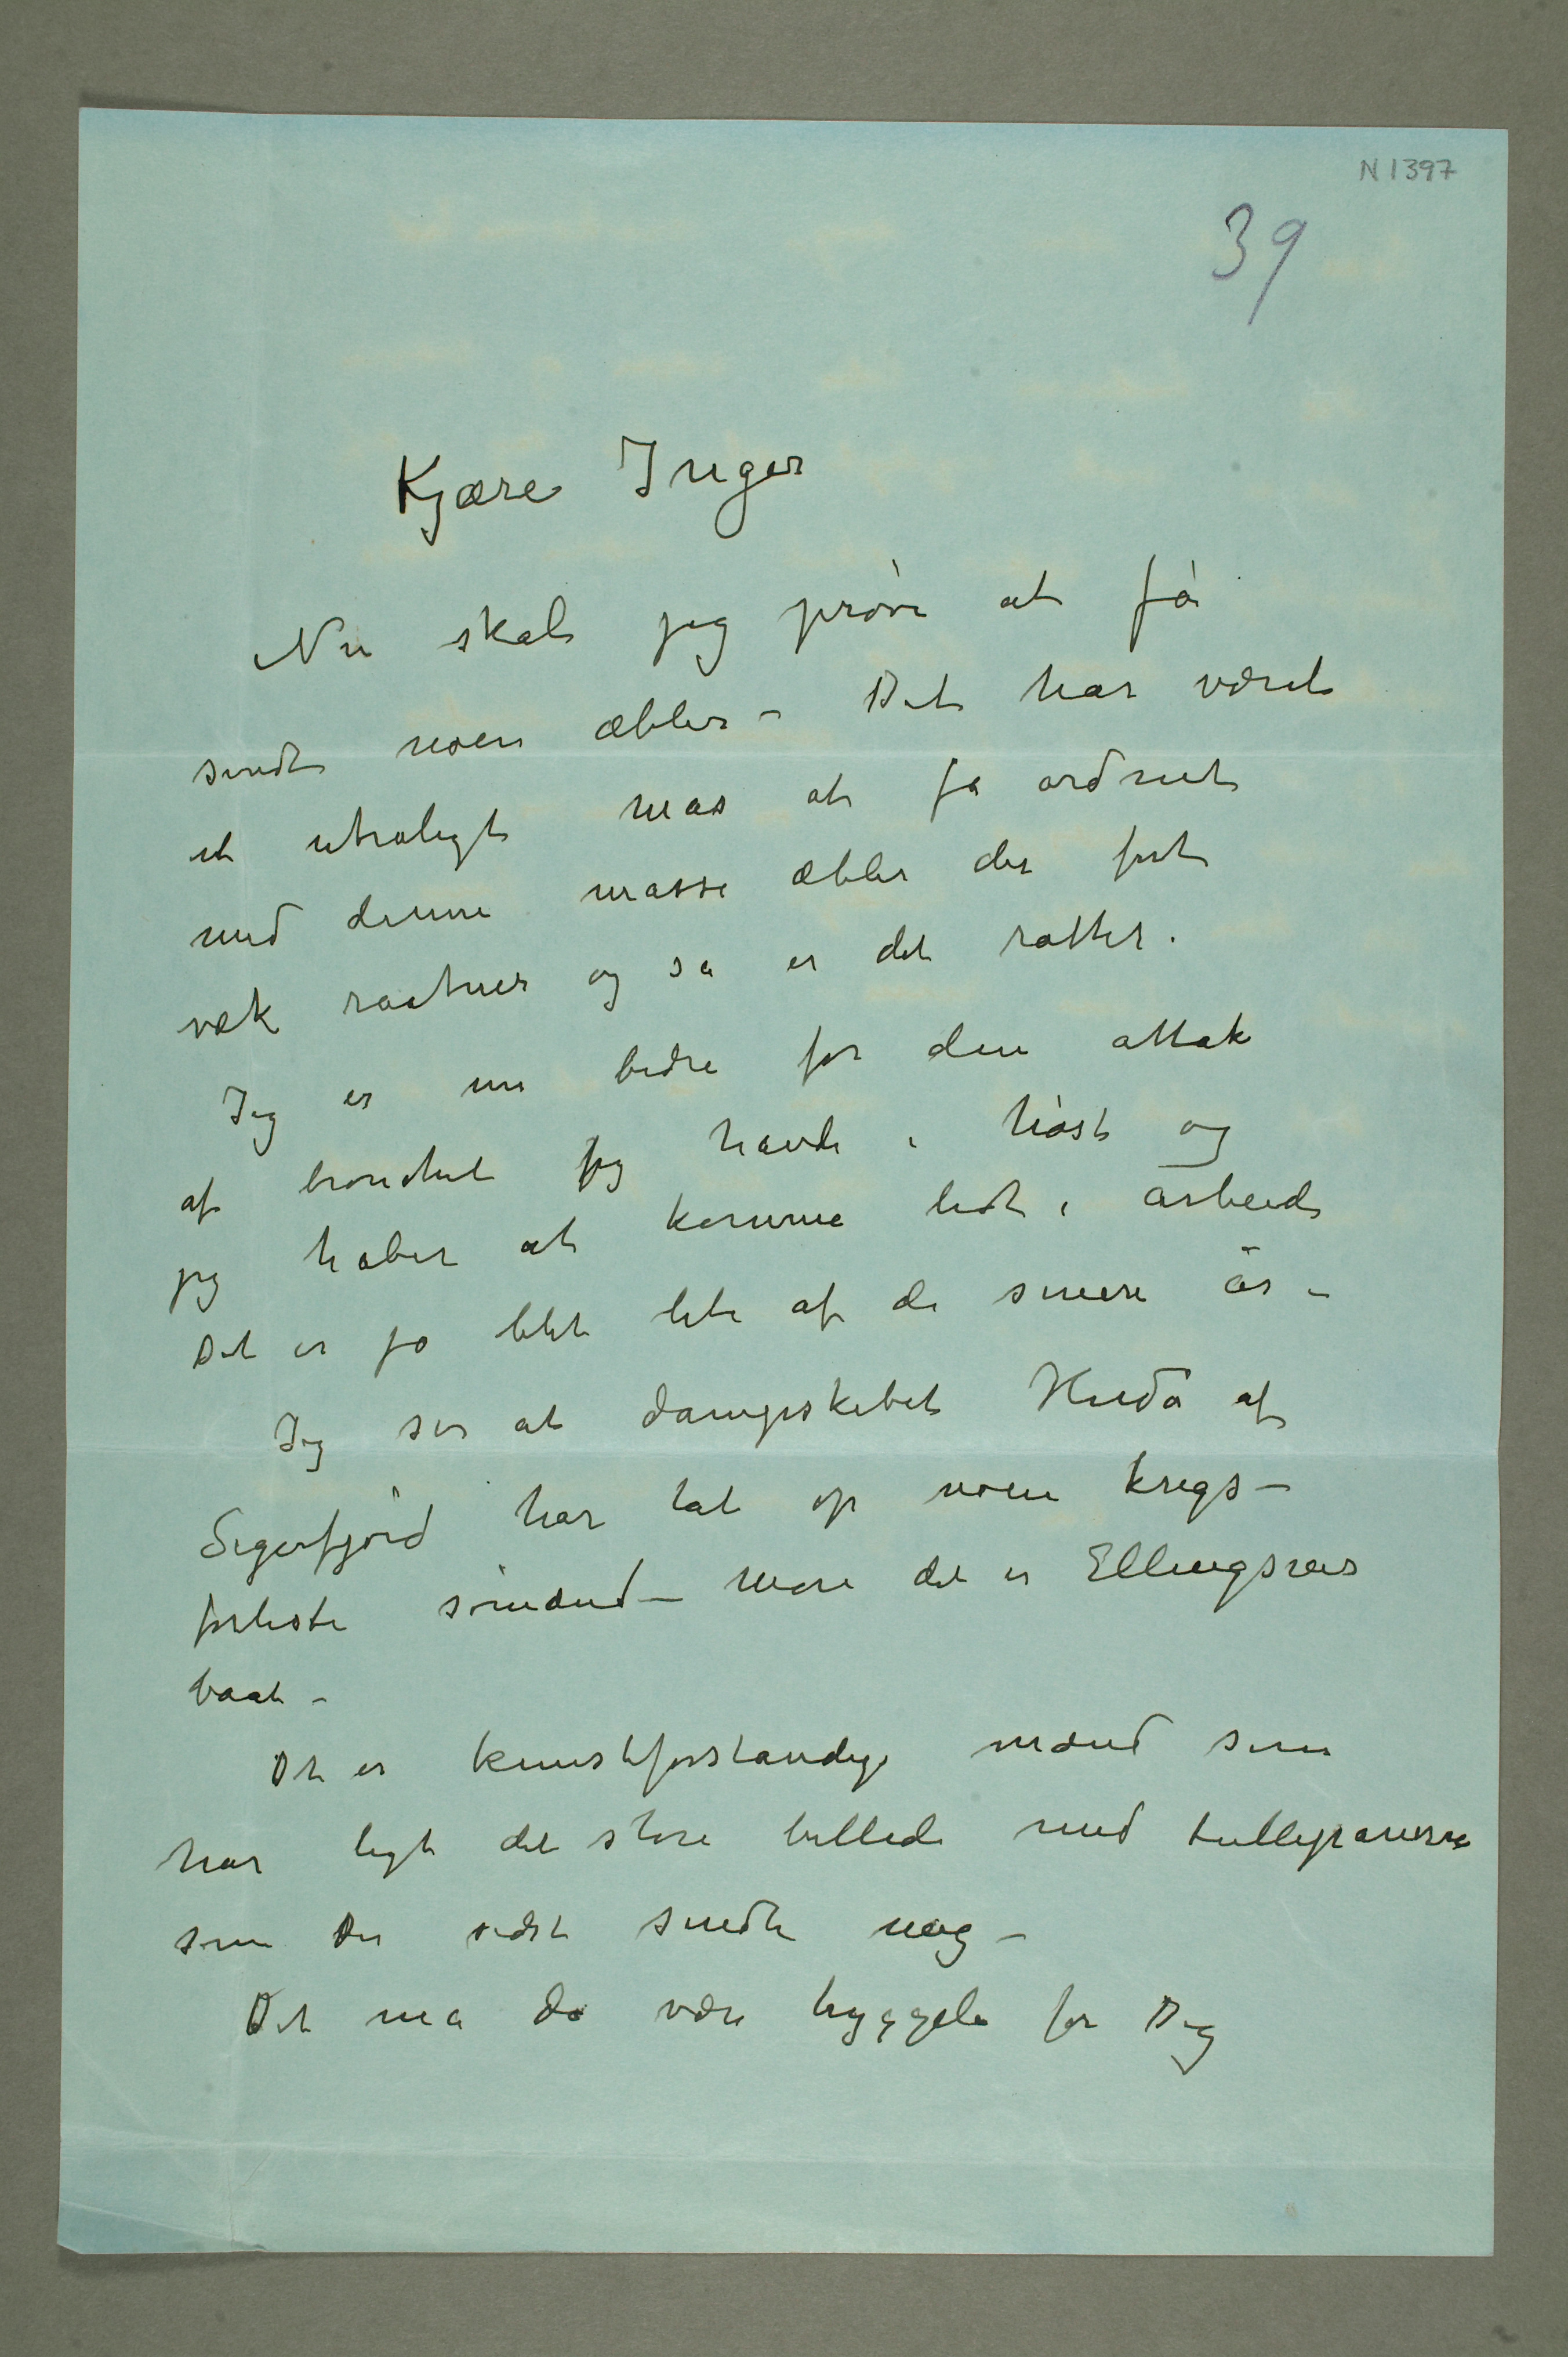 N 1397
39
Kjære Inger
Nu skal jeg prøve at få
sendt noen æbler – Det har været
et utroligt mas at få ordnet
med denne masse æbler der fort
væk raatner og så er det rotter.
Jeg er nu bedre for den attak
af bronchit jeg havde i høst og
jeg håber at komme lidt i arbeid
Det er jo blet lite af de senere år –
Jeg ser at dampskibet Hndå af
Sigerfjord har tat op noen krigs–
forliste sømænd – mon det er Ellingsens
baat –
Det er kunstforstandige mænd som
har ligt det store billede med tulipanerne
som Du sidst sendte meg –
Det må da være hyggelig for Dig